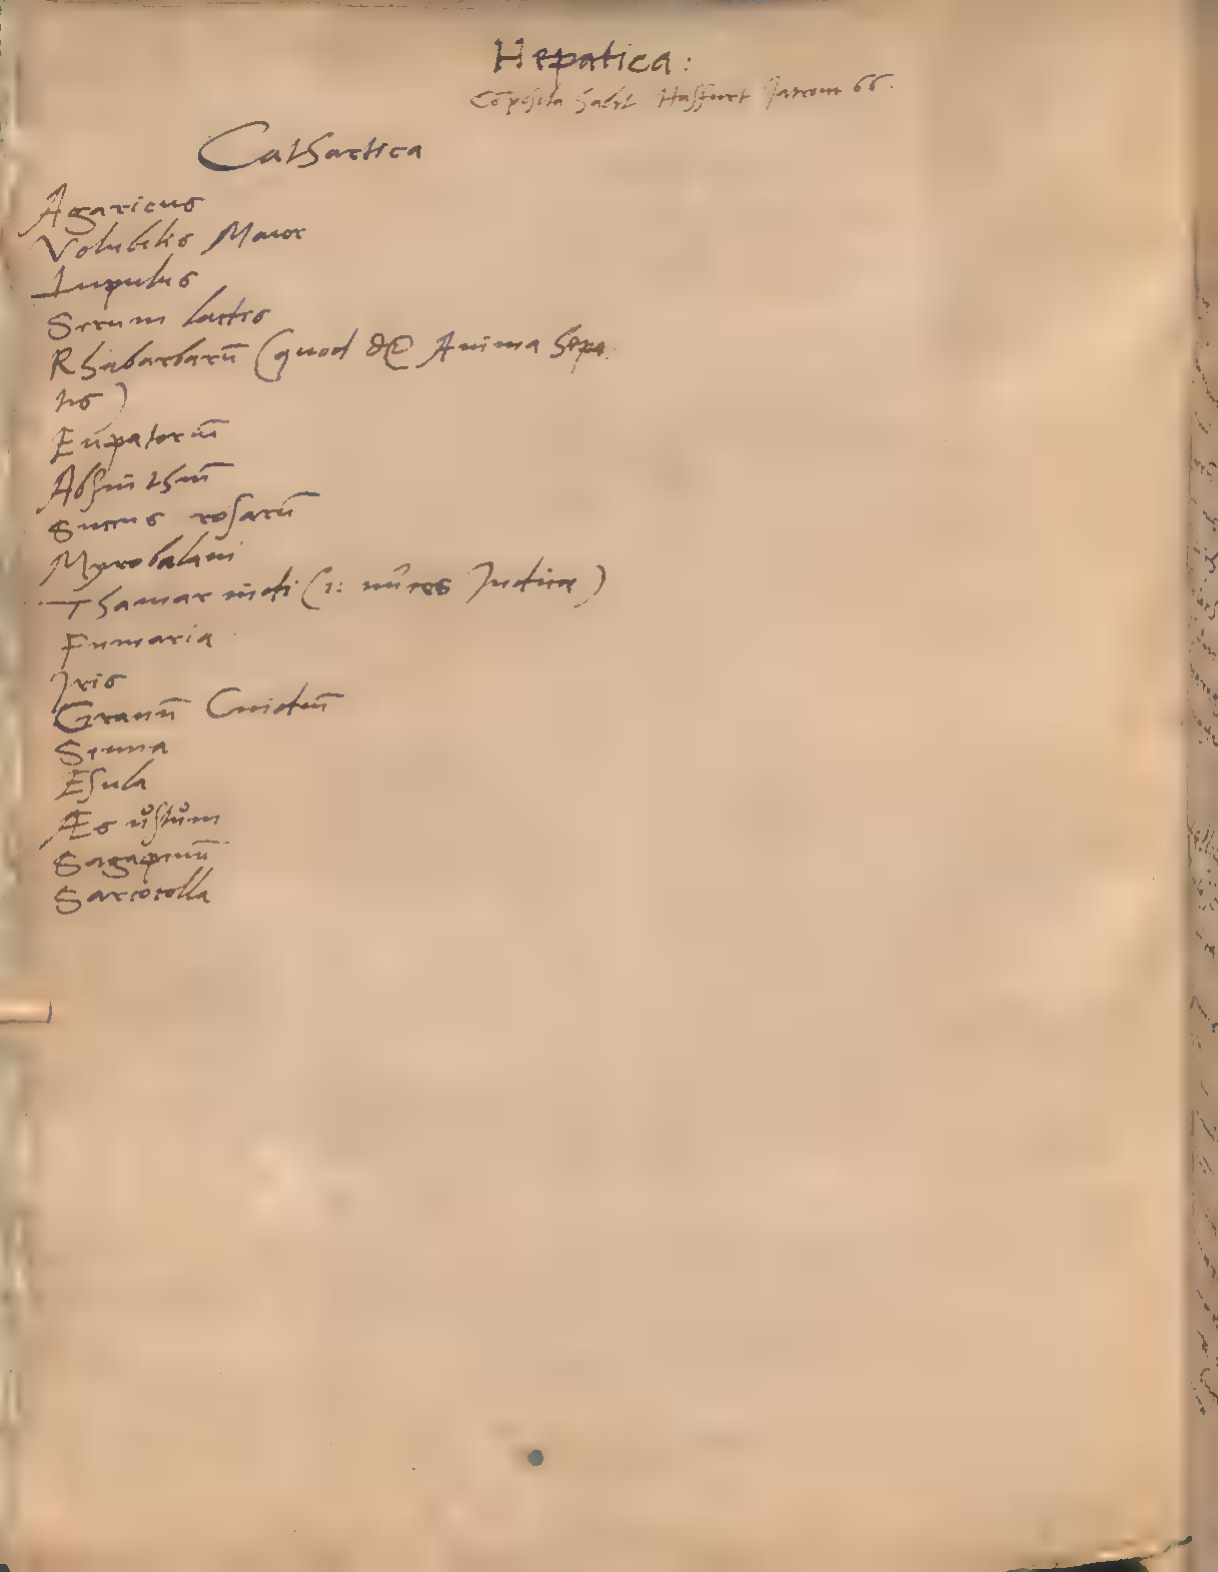 Hepatica:
Cōposita Hasfurt 66.
Cathartica
Agaricus
Volubilis Maior
Lupulus
Serum lactis
Rhabarbarū (quod Anima hepa
tis)
Eupatoriū
Absinthiū
Succus rosarū
Myrobalani
Thamarindi (i: nuces Indicæ)
Fumaria
Iris
Granū Cnidiū
Senna
Esula
Æs ustum
Sagapenū
Sarcocolla